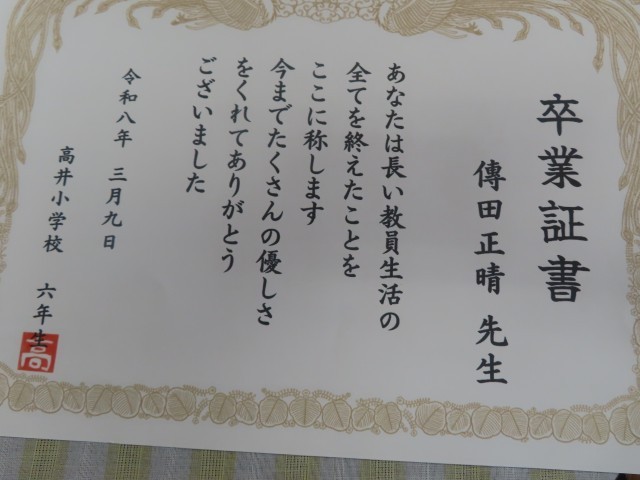 卒業証書
傳田正晴 先生
あなたは長い教員生活の
全てを終えたことを
ここに称します
今までたくさんの優しさ
をくれてありがとう
ございました
令和八年 三月九日
高井小学校 六年生
高